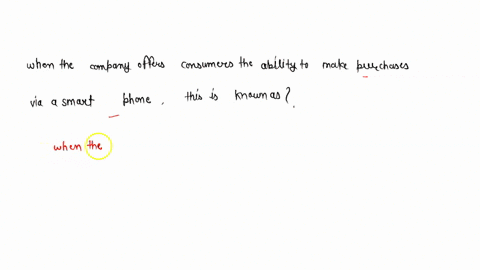 when the company offers consumers the ability to make purchases
via a smart phone, this is known as?
when the